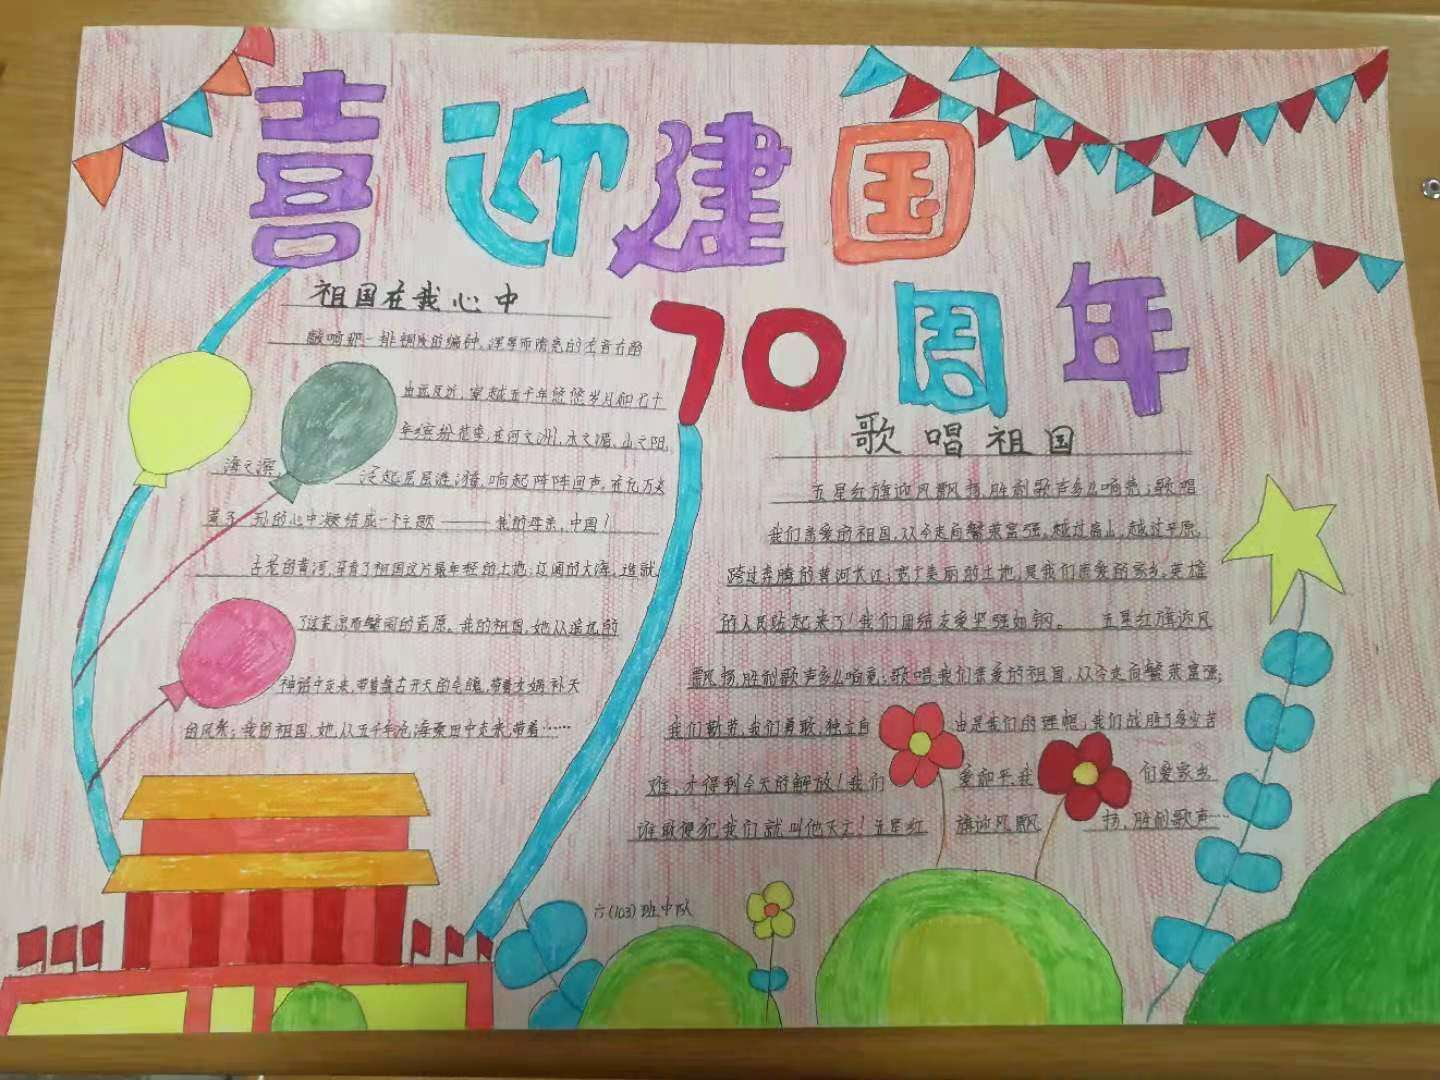 喜迎建国
70周年
祖国在我心中
敲响那一排铜质的编钟,浑厚而嘹亮的声音在酚
由远及近,穿越五千年悠悠岁月和七十
年缤纷花季,在河之洲,水之湄,山之阳,
海之滨 泛起层层涟漪,响起阵阵回声,在亿万炎
黄子孙的心中凝结成一个主题——我的母亲,中国!
古老的黄河,孕育了祖国这片最年轻的土地;辽阔的大海,造就
了这荒凉而繁闹的荒原。我的祖国,她从遥远的
神话中走来,带着盘古开天的气魄,带着女娲补天
的风采;我的祖国,她从五千年沧海桑田中走来,带着……
歌唱祖国
五星红旗迎风飘扬,胜利歌声多么响亮;歌唱
我们亲爱的祖国,从今走向繁荣富强,越过高山,越过平原,
跨过奔腾的黄河长江;宽广美丽的土地,是我们亲爱的家乡,英雄
的人民站起来了!我们团结友爱坚强如钢。 五星红旗迎风
飘扬,胜利歌声多么响亮;歌唱我们亲爱的祖国,从今走向繁荣富强;
我们勤劳,我们勇敢,独立自 由是我们的理想;我们战胜了多少苦
难,才得到今天的解放!我们 爱和平,我 们爱家乡
谁敢侵犯我们就叫他灭亡!五星红 旗迎风飘 扬,胜利歌声…
六(103)班中队